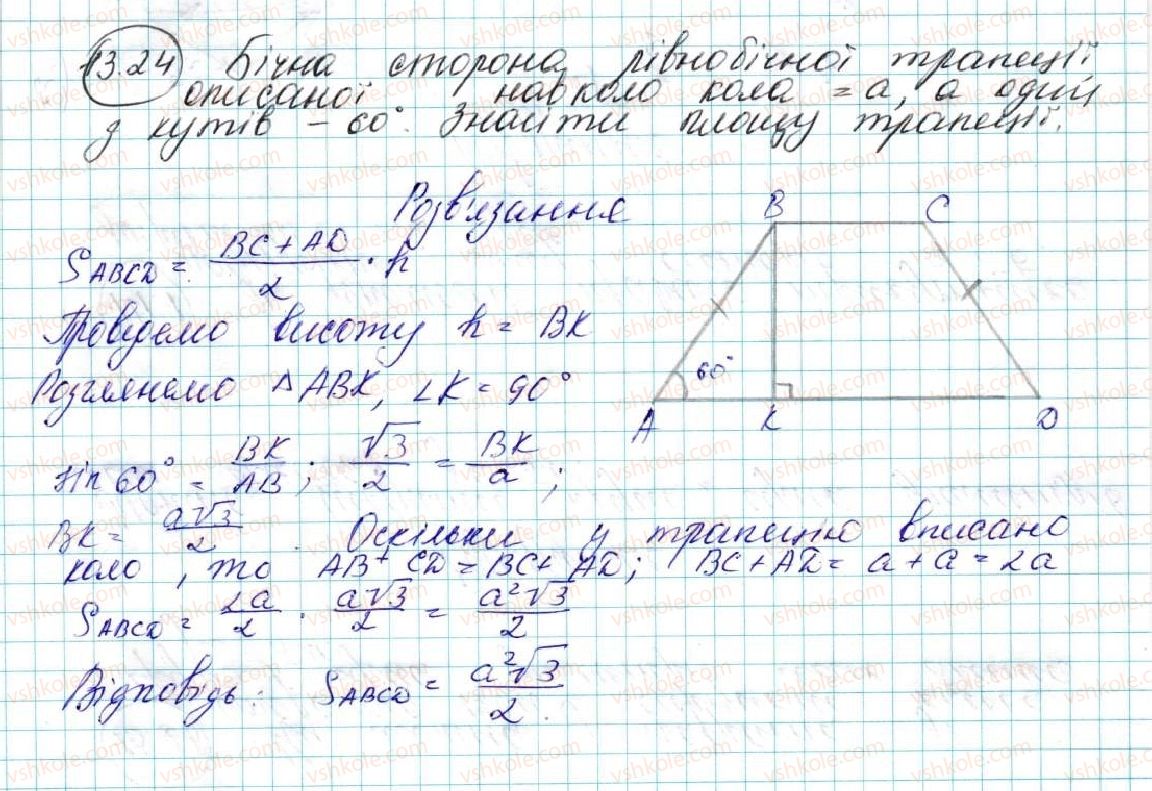 13.24 Бічна сторона рівнобічної трапеції
описаної навколо кола = a, а один
з кутів – 60°. Знайти площу трапеції.
Розв'язання
S ABCD = (BC + AD)/2 · h
Проведемо висоту h = BK
Розглянемо △ABK, ∠K = 90°
sin 60° = BK/AB; √3/2 = BK/a;
BK = a√3/2. Оскільки у трапецію вписано
коло, то AB + CD = BC + AD; BC + AD = a + a = 2a
S ABCD = 2a/2 · a√3/2 = a²√3/2
Відповідь: S ABCD = a²√3/2.
B C
60°
A K D
vshkole.com